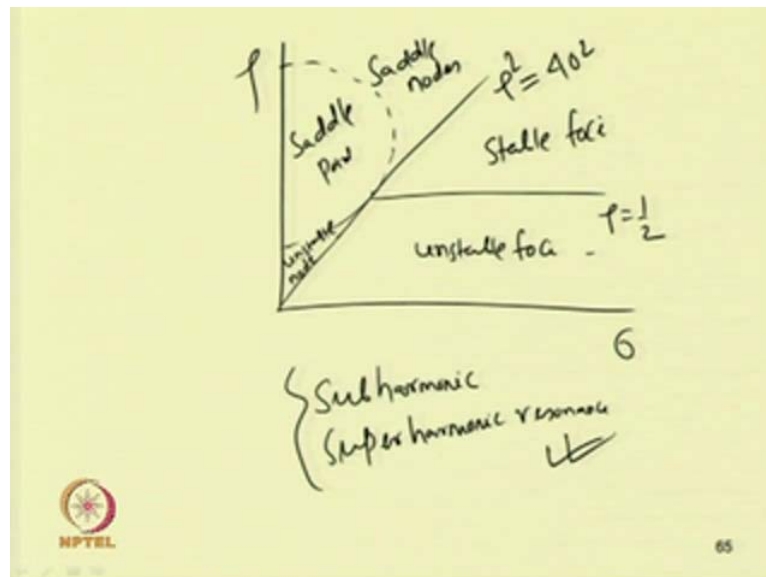 ρ
Saddle
nodes
Saddle
ρ² = 4σ²
Stable foci
Unstable
node
unstable foci
ρ = 1/2
σ
Subharmonic
Superharmonic resonance
NPTEL
65